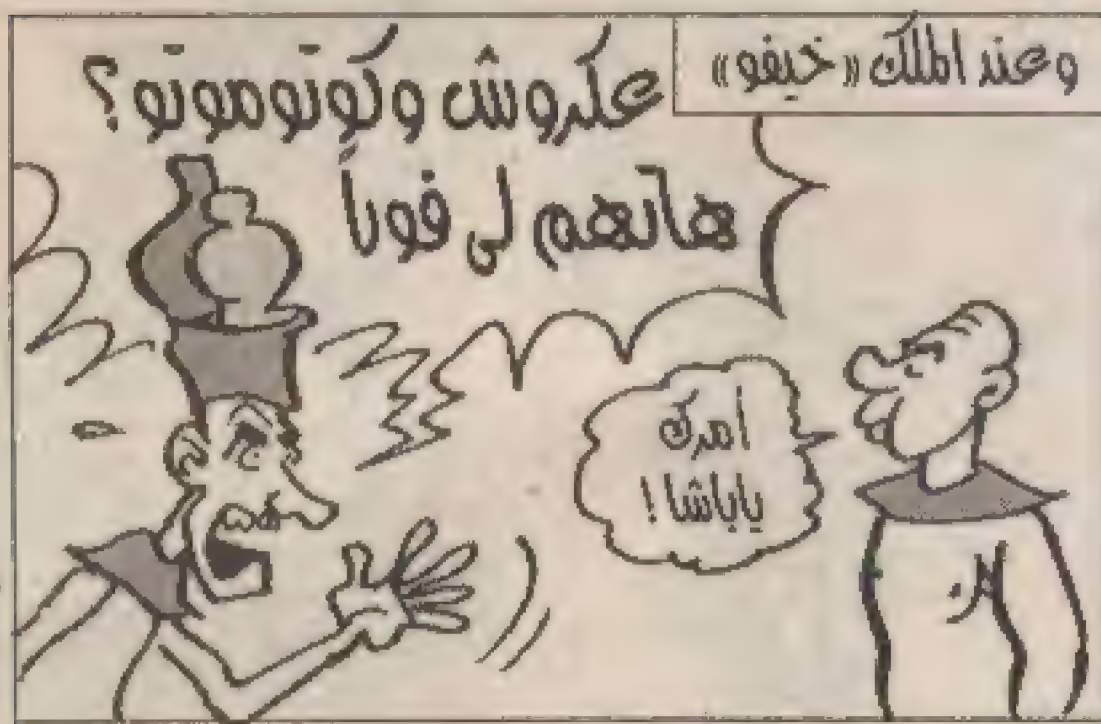 وعند الملك «خيفو»
عكروش وكوتوموتو؟
هاتهم لى فوراً
أمرك
ياباشا!